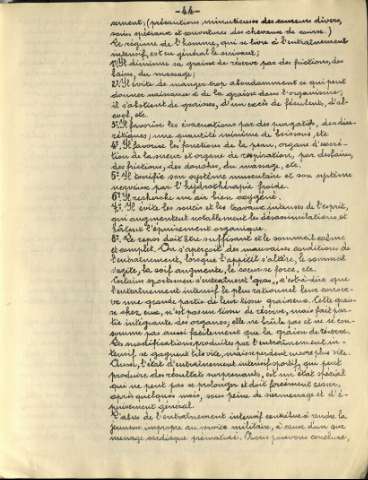 - 44 -
sement; (précautions minutieuses des sueurs divers,
soins spéciaux et couverture des chevaux de course.)
Le régime de l'homme, qui se livre à l'entraînement
intensif, est en général le suivant;
1° Il diminue sa graisse de réserve par des frictions, des
bains, du massage;
2° Il évite de manger trop abondamment ce qui peut
donner naissance à de la graisse dans l'organisme;
il s'abstient de graisses, d'un excès de féculents, d'al-
cool, etc.
3° Il favorise les évacuations par des purgatifs, des diu-
rétiques; une quantité minime de boissons, etc
4° Il favorise les fonctions de la peau, organe d'excré-
tion de la sueur et organe de respiration, par des bains,
des frictions, des douches, du massage, etc.
5° Il tonifie son système musculaire et son système
nerveux par l'hydrothérapie froide.
6° Il recherche un air bien oxygéné.
7° Il évite les soucis et les travaux intenses de l'esprit,
qui augmentent notablement les désassimilations et
hâtent l'épuisement organique.
8° Le repos doit être suffisant et le sommeil calme
et complet. On s'aperçoit des mauvaises conditions de
l'entraînement, lorsque l'appétit s'altère, le sommeil
s'agite, la soif augmente, le cœur se force, etc.
Certains sportsmen s'entraînent "gras", c'est-à-dire que
l'entraînement intensif le plus rationnel leur conser-
ve une grande partie de leur tissu graisseux. Cette grais-
se chez eux, n'est pas un tissu de réserve, mais fait par-
tie intégrante des organes; elle ne brûle pas et ne se con-
sume pas aussi facilement que la graisse de réserve.
Les modifications produites par l'entraînement in-
tensif se gagnent très vite, mais se perdent encore plus vite.
Aussi, l'état d'entraînement intensif sportif, qui peut
produire des résultats surprenants, est un état spécial
qui ne peut pas se prolonger et doit forcément cesser,
après quelques mois, sous peine de surmenage et d'é-
puisement général.
L'abus de l'entraînement intensif contribue à rendre la
jeunesse impropre au service militaire, à cause d'un sur-
menage cardiaque prématuré. Nous pouvons conclure,